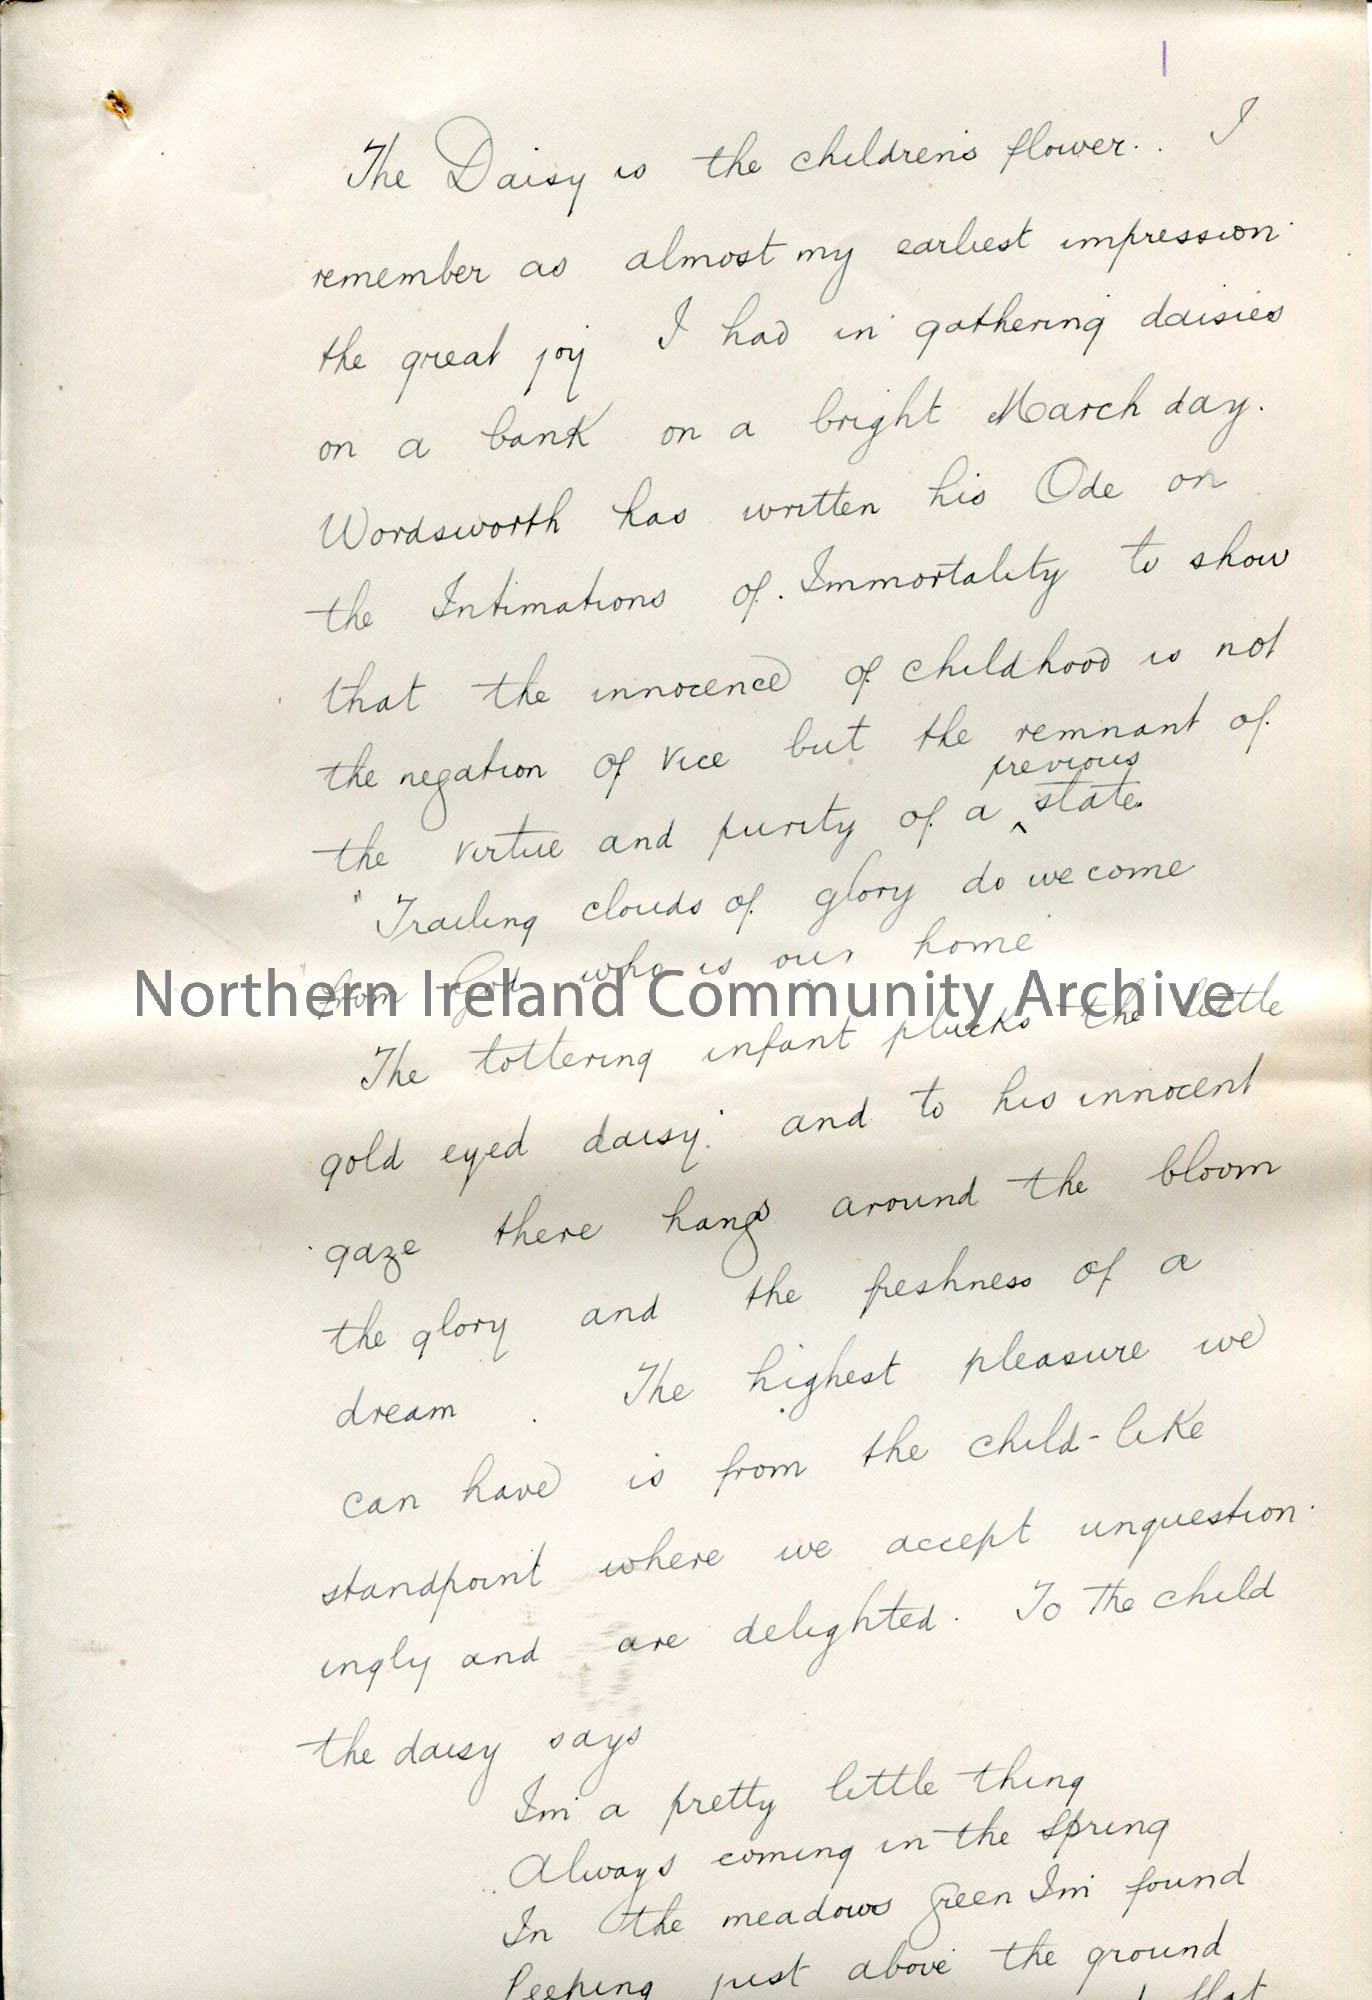 The Daisy is the children's flower. I
remember as almost my earliest impression
the great joy I had in gathering daisies
on a bank on a bright March day.
Wordsworth has written his Ode on
the Intimations of Immortality to show
that the innocence of childhood is not
the negation of vice but the remnant of
previous
the virtue and purity of a ^ state.
"Trailing clouds of glory do we come
from God who is our home
Northern Ireland Community Archive
The tottering infant plucks the little
gold eyed daisy and to his innocent
gaze there hangs around the bloom
the glory and the freshness of a
dream. The highest pleasure we
can have is from the child-like
standpoint where we accept unquestion
ingly and are delighted. To the child
the daisy says
I'm a pretty little thing
Always coming in the spring
In the meadows green I'm found
Peeping just above the ground
flat